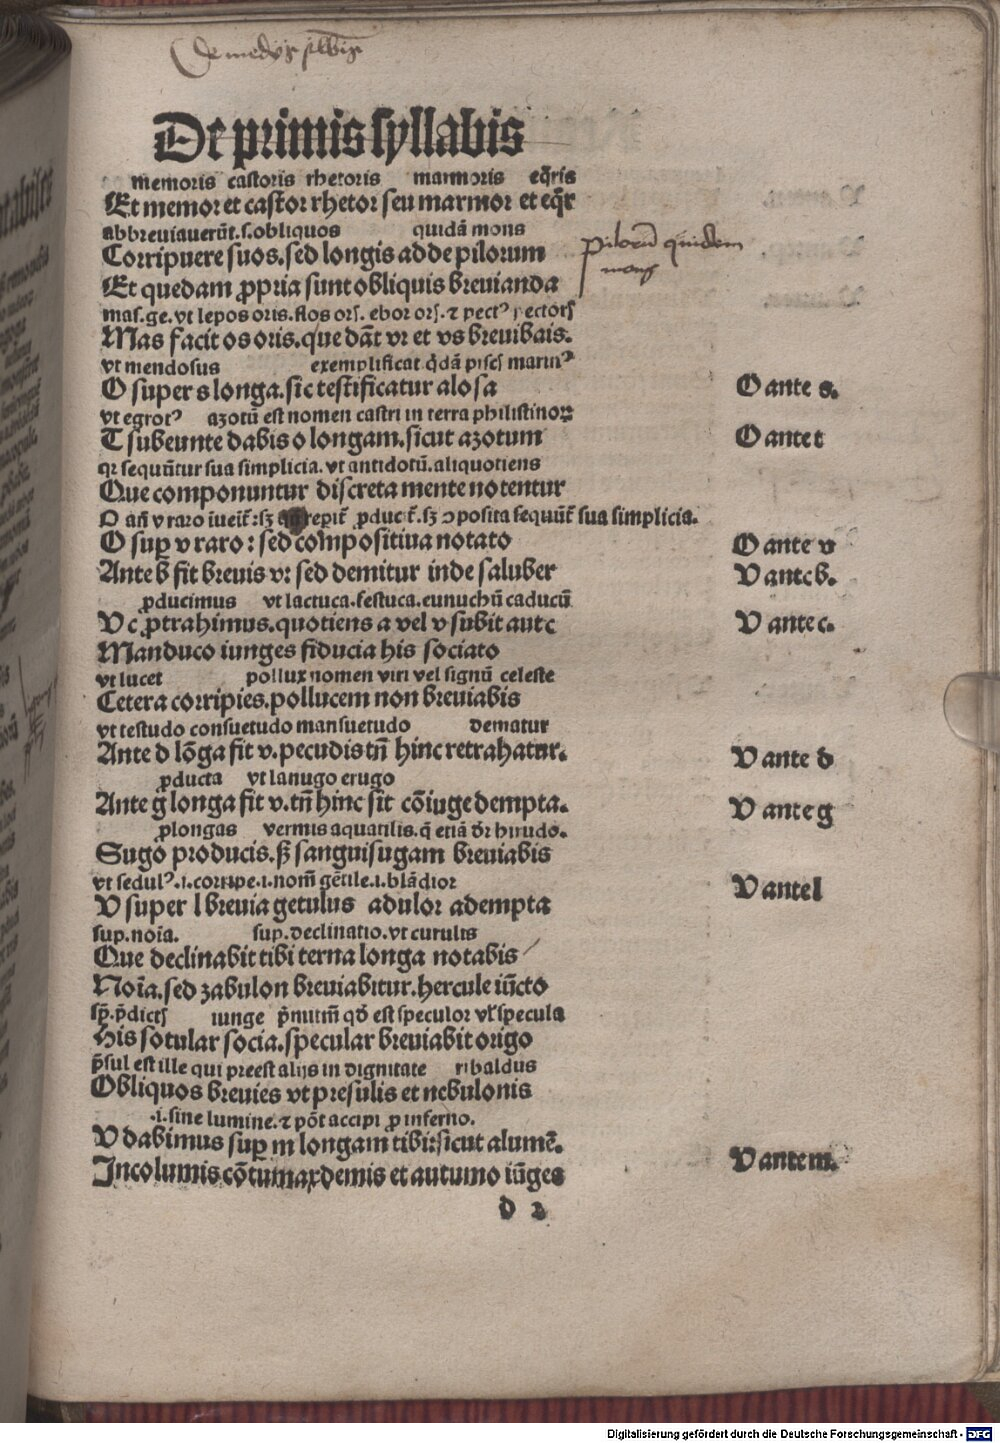 De medijs sillabis
De primis syllabis
memoris castoris rhetoris marmoris eq̄ris
Et memor et castor rhetor seu marmor et eq̄r
abbreuiauerūt.s.obliquos quidā mons
Corripuere suos.sed longis adde pilorum
Pilorū quidem
mons
Et quedam ꝓpria sunt obliquis breuianda
mas.ge.vt lepos oris.flos orī. ebor orī. ⁊ pectꝰ pectorī
Mas facit os oris.que dāt vr et vs breuibais.
vt mendosus exemplificat q̄dā piscī marinꝰ
O super s longa.sic testificatur alosa
O ante s.
vt egrotꝰ azotū est nomen castri in terra philistinoꝝ
T subeunte dabis o longam.sicut azotum
O ante t
qr sequūtur sua simplicia.vt antidotū.aliquotiens
Que componuntur discreta mente notentur
O an̄ v raro īueit̄:sꝫ repit̄ ꝓducit̄.sꝫ ↄposita sequūt̄ sua simplicia.
O suꝑ v raro: sed compositiua notato
O ante v
Ante b fit breuis v: sed demitur inde saluber
V ante b.
ꝓducimus vt lactuca.festuca.eunuchū caducū
V c ꝓtrahimus.quotiens a vel v subit aut c
V ante c.
Manduco iunges fiducia his sociato
vt lucet pollux nomen viri vel signū celeste
Cetera corripies.pollucem non breuiabis
vt testudo consuetudo mansuetudo dematur
Ante d lōga fit v.pecudis tn̄ hinc retrahatur.
V ante d
ꝓducta vt lanugo erugo
Ante g longa fit v.tn̄ hinc sit cōiuge dempta.
V ante g
ꝓlongas vermis aquatilis.q̄ etiā dr̄ hirudo.
Sugo producis.sꝫ sanguisugam breuiabis
vt sedulꝰ.i.corripe.i.nom̄ gētile.i.blādior
V super l breuia getulus adulor adempta
V ante l
sup.noīa. sup.declinatio.vt curulis
Que declinabit tibi terna longa notabis
Noīa.sed zabulon breuiabitur.hercule iūcto
sp̄.p̄dictī iunge p̄nutm̄ qd̄ est speculor vl̓ specula
His sotular socia.specular breuiabit origo
p̄sul est ille qui preest alijs in dignitate ribaldus
Obliquos breuies vt presulis et nebulonis
.i.sine lumine.⁊ pōt accipi ꝓ inferno.
V dabimus suꝑ m longam tibi:sicut alumē.
Incolumis cōtumax demis et autumo iūges
V ante m.
d 2
Digitalisierung gefördert durch die Deutsche Forschungsgemeinschaft - DFG